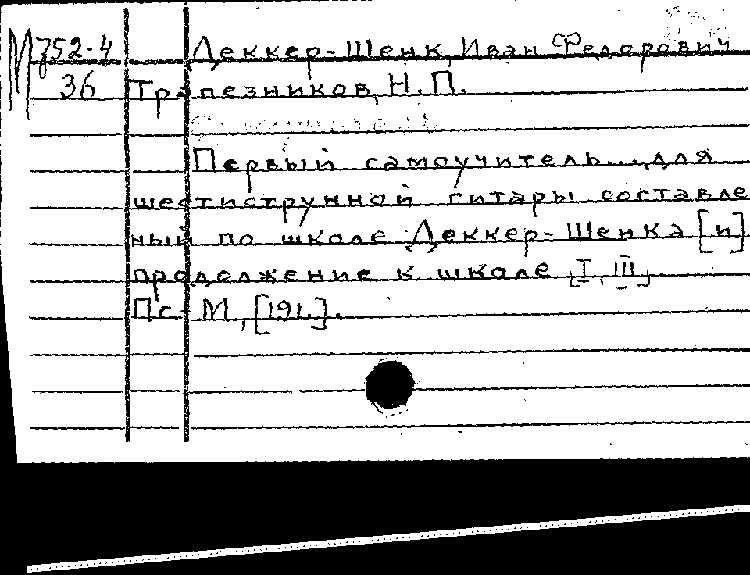 М 752-4 Деккер-Шенк, Иван Федорович
36 Трапезников, Н. П.
Первый самоучитель... для
шестиструнной гитары составле
ный по школе Деккер-Шенка [и]
продолжение к школе [I, III]
Пс- М, [191.].